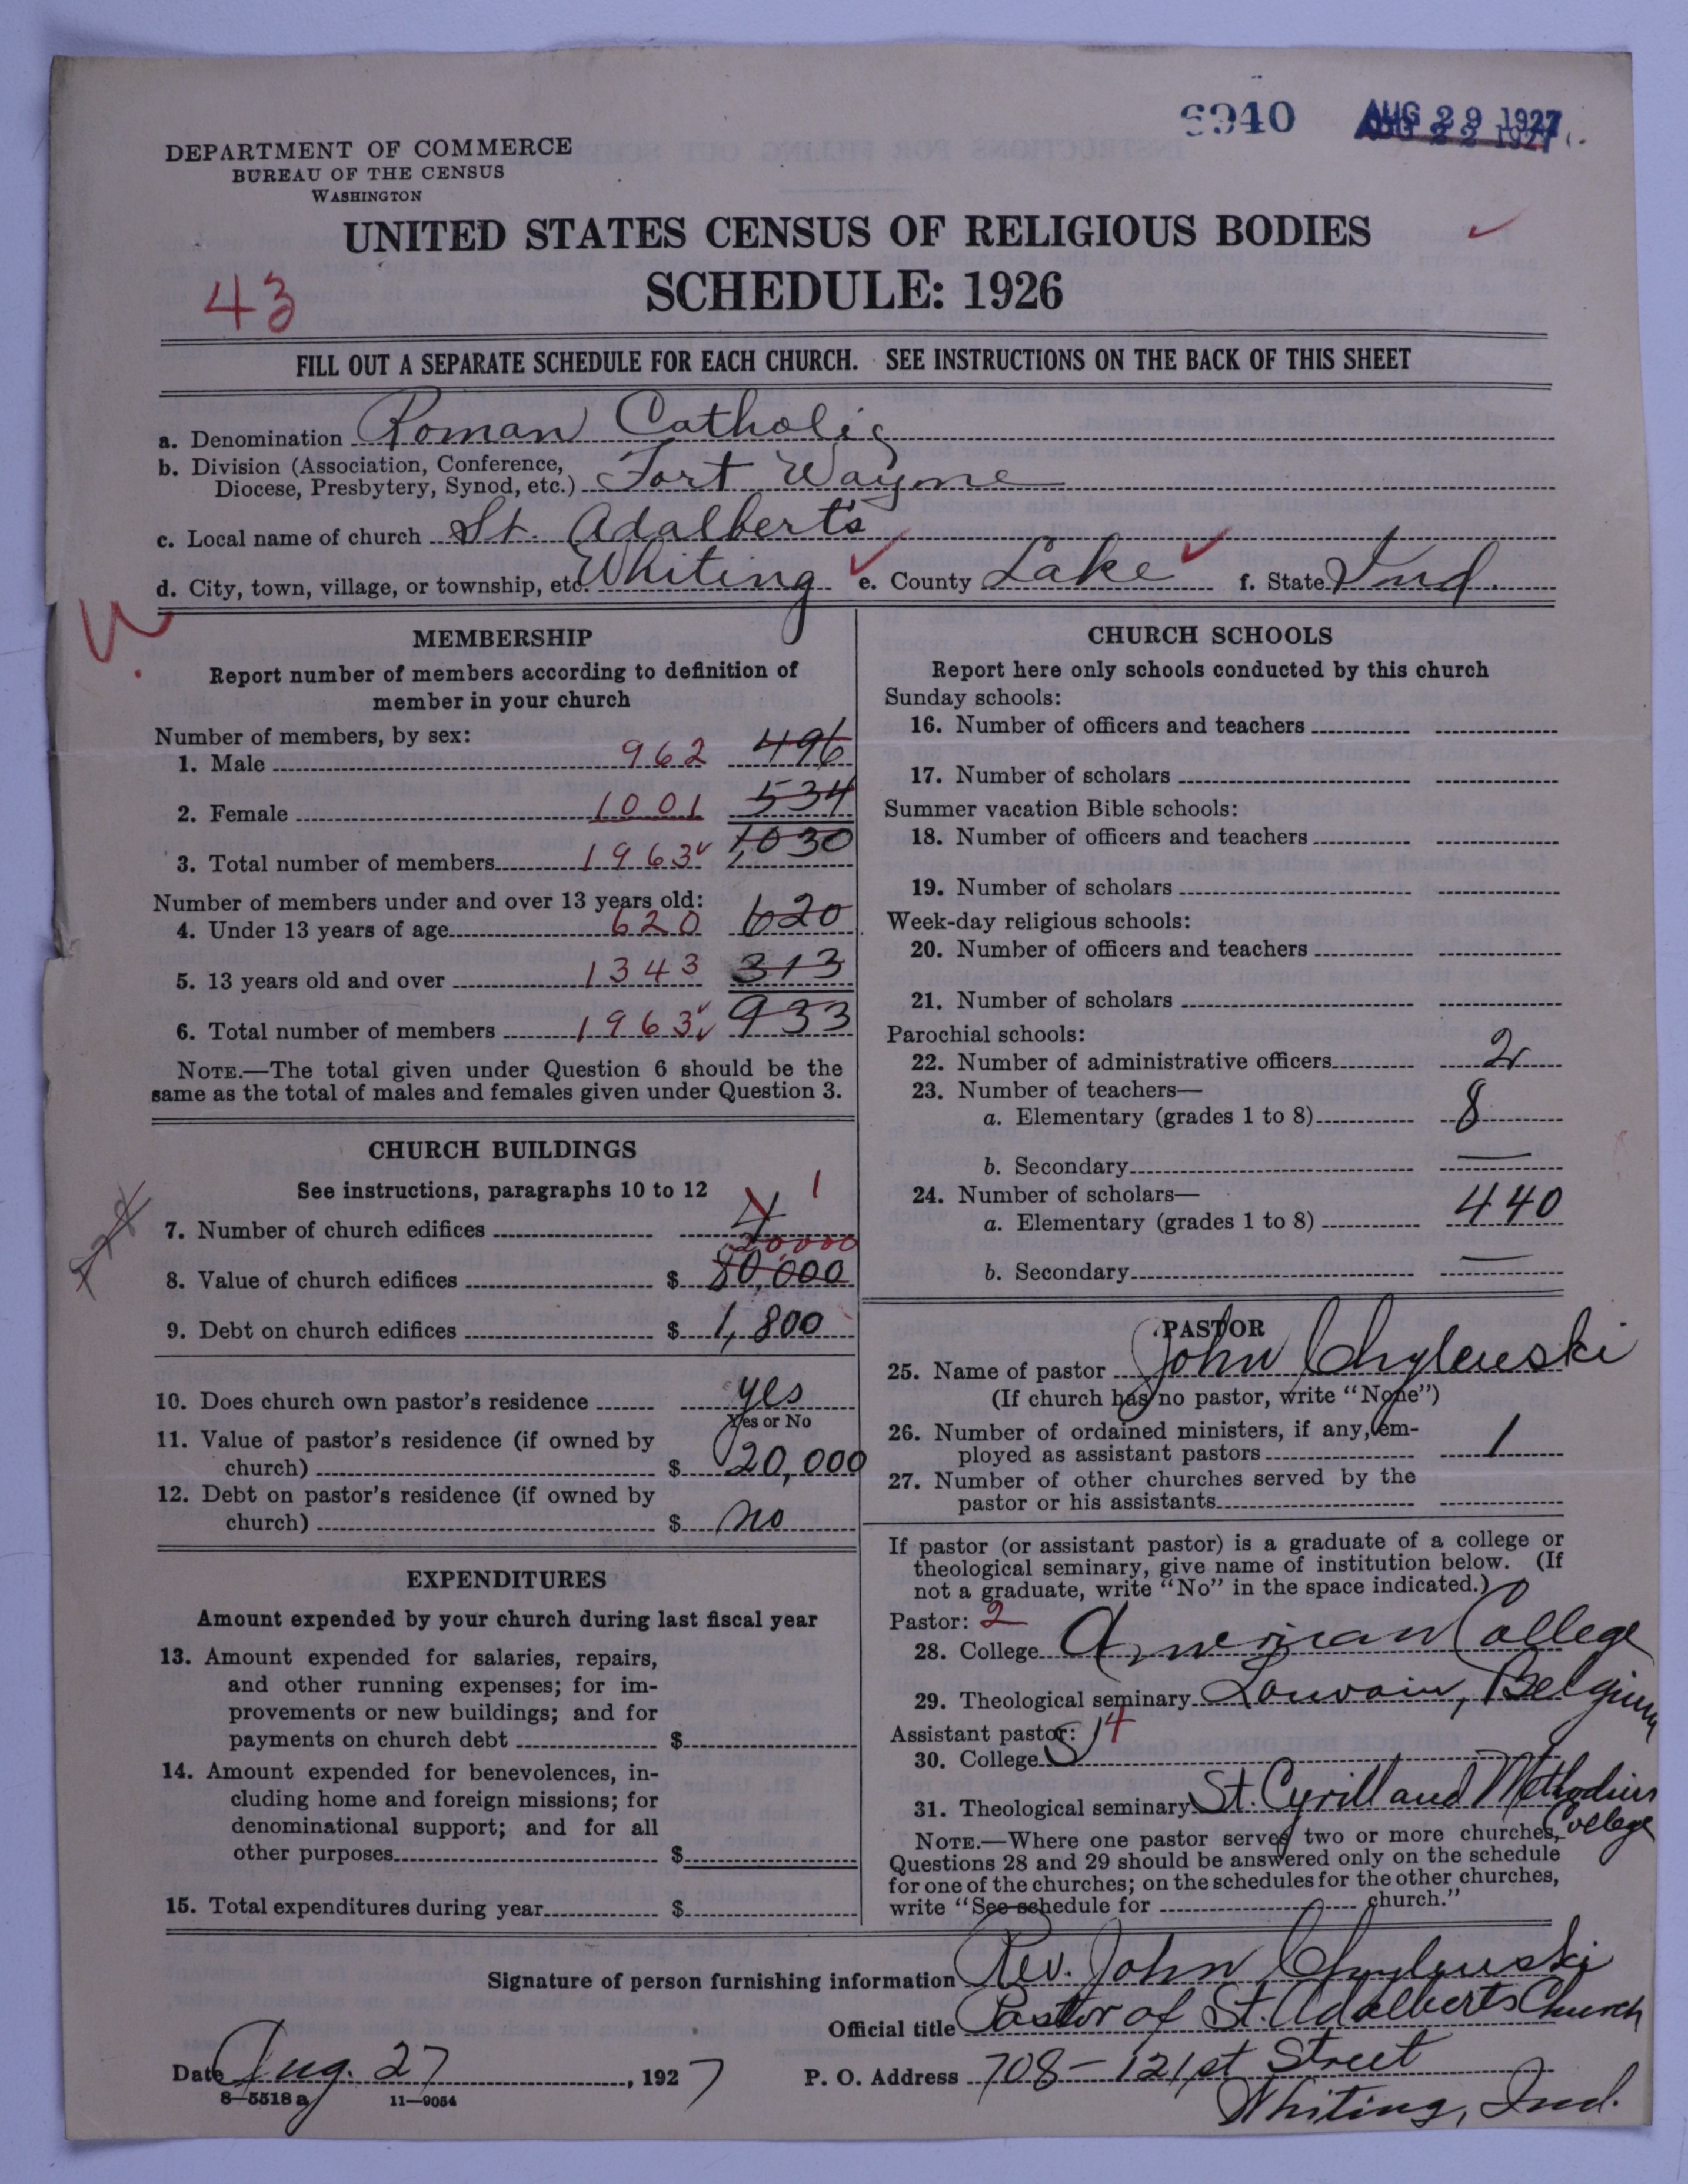 6940 AUG 29 1927
AUG 22 1927
DEPARTMENT OF COMMERCE
BUREAU OF THE CENSUS
WASHINGTON
UNITED STATES CENSUS OF RELIGIOUS BODIES
43 SCHEDULE: 1926
FILL OUT A SEPARATE SCHEDULE FOR EACH CHURCH. SEE INSTRUCTIONS ON THE BACK OF THIS SHEET
a. Denomination Roman Catholic
b. Division (Association, Conference,
Diocese, Presbytery, Synod, etc.) Fort Wayne
c. Local name of church St. Adalbert's
d. City, town, village, or township, etc. Whiting e. County Lake f. State Ind.
MEMBERSHIP
Report number of members according to definition of
member in your church
Number of members, by sex:
1. Male 962 496
2. Female 1001 534
3. Total number of members 1963 1,030
Number of members under and over 13 years old:
4. Under 13 years of age 620 620
5. 13 years old and over 1343 313
6. Total number of members 1963 933
NOTE.—The total given under Question 6 should be the
same as the total of males and females given under Question 3.
CHURCH BUILDINGS
See instructions, paragraphs 10 to 12
7. Number of church edifices 4 1
20,000
8. Value of church edifices $ 80,000
9. Debt on church edifices $ 1,800
10. Does church own pastor's residence yes
Yes or No
11. Value of pastor's residence (if owned by
church) $ 20,000
12. Debt on pastor's residence (if owned by
church) $ no
EXPENDITURES
Amount expended by your church during last fiscal year
13. Amount expended for salaries, repairs,
and other running expenses; for im-
provements or new buildings; and for
payments on church debt $
14. Amount expended for benevolences, in-
cluding home and foreign missions; for
denominational support; and for all
other purposes $
15. Total expenditures during year $
CHURCH SCHOOLS
Report here only schools conducted by this church
Sunday schools:
16. Number of officers and teachers
17. Number of scholars
Summer vacation Bible schools:
18. Number of officers and teachers
19. Number of scholars
Week-day religious schools:
20. Number of officers and teachers
21. Number of scholars
Parochial schools:
22. Number of administrative officers 2
23. Number of teachers—
a. Elementary (grades 1 to 8) 8
b. Secondary —
24. Number of scholars—
a. Elementary (grades 1 to 8) 440
b. Secondary —
PASTOR
25. Name of pastor John Chylewski
(If church has no pastor, write "None")
26. Number of ordained ministers, if any, em-
ployed as assistant pastors 1
27. Number of other churches served by the
pastor or his assistants
If pastor (or assistant pastor) is a graduate of a college or
theological seminary, give name of institution below. (If
not a graduate, write "No" in the space indicated.)
Pastor: 2
28. College American College
29. Theological seminary Louvain, Belgium
Assistant pastor: 14
30. College
31. Theological seminary St. Cyrill and Methodius
College
NOTE.—Where one pastor serves two or more churches,
Questions 28 and 29 should be answered only on the schedule
for one of the churches; on the schedules for the other churches,
write "See schedule for church."
Signature of person furnishing information Rev. John Chylewski
Official title Pastor of St. Adalberts Church
Date Aug. 27, 1927 P. O. Address 708-121st Street
8—5518 a 11—9054 Whiting, Ind.